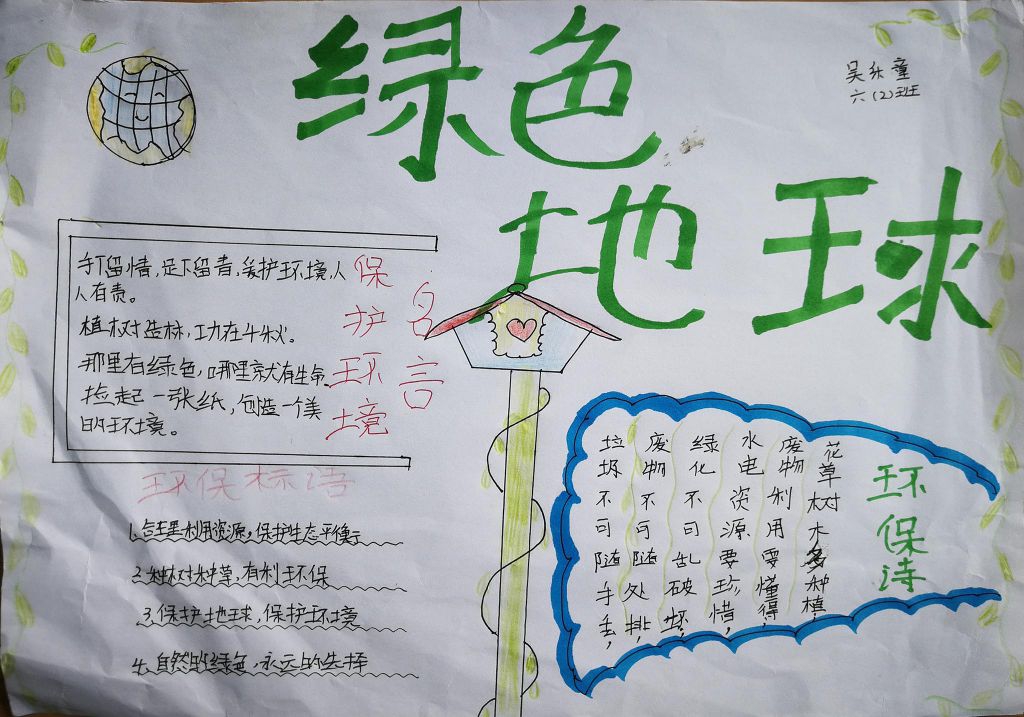 绿色
地球
吴乐童
六(2)班
手下留情,足下留青,爱护环境,人
人有责。
植树造林,功在千秋。
那里有绿色,哪里就有生命。
捡起一张纸,创造一个美
的环境。
保护环境
名言
环保标语
1.合理利用资源,保护生态平衡
2.种树种草,有利环保
3.保护地球,保护环境
4.自然的绿色,永远的选择
环保诗
花草树木多种植,
废物利用要懂得,
水电资源要珍惜,
绿化不可乱破坏,
废物不可随处排,
垃圾不可随手丢,